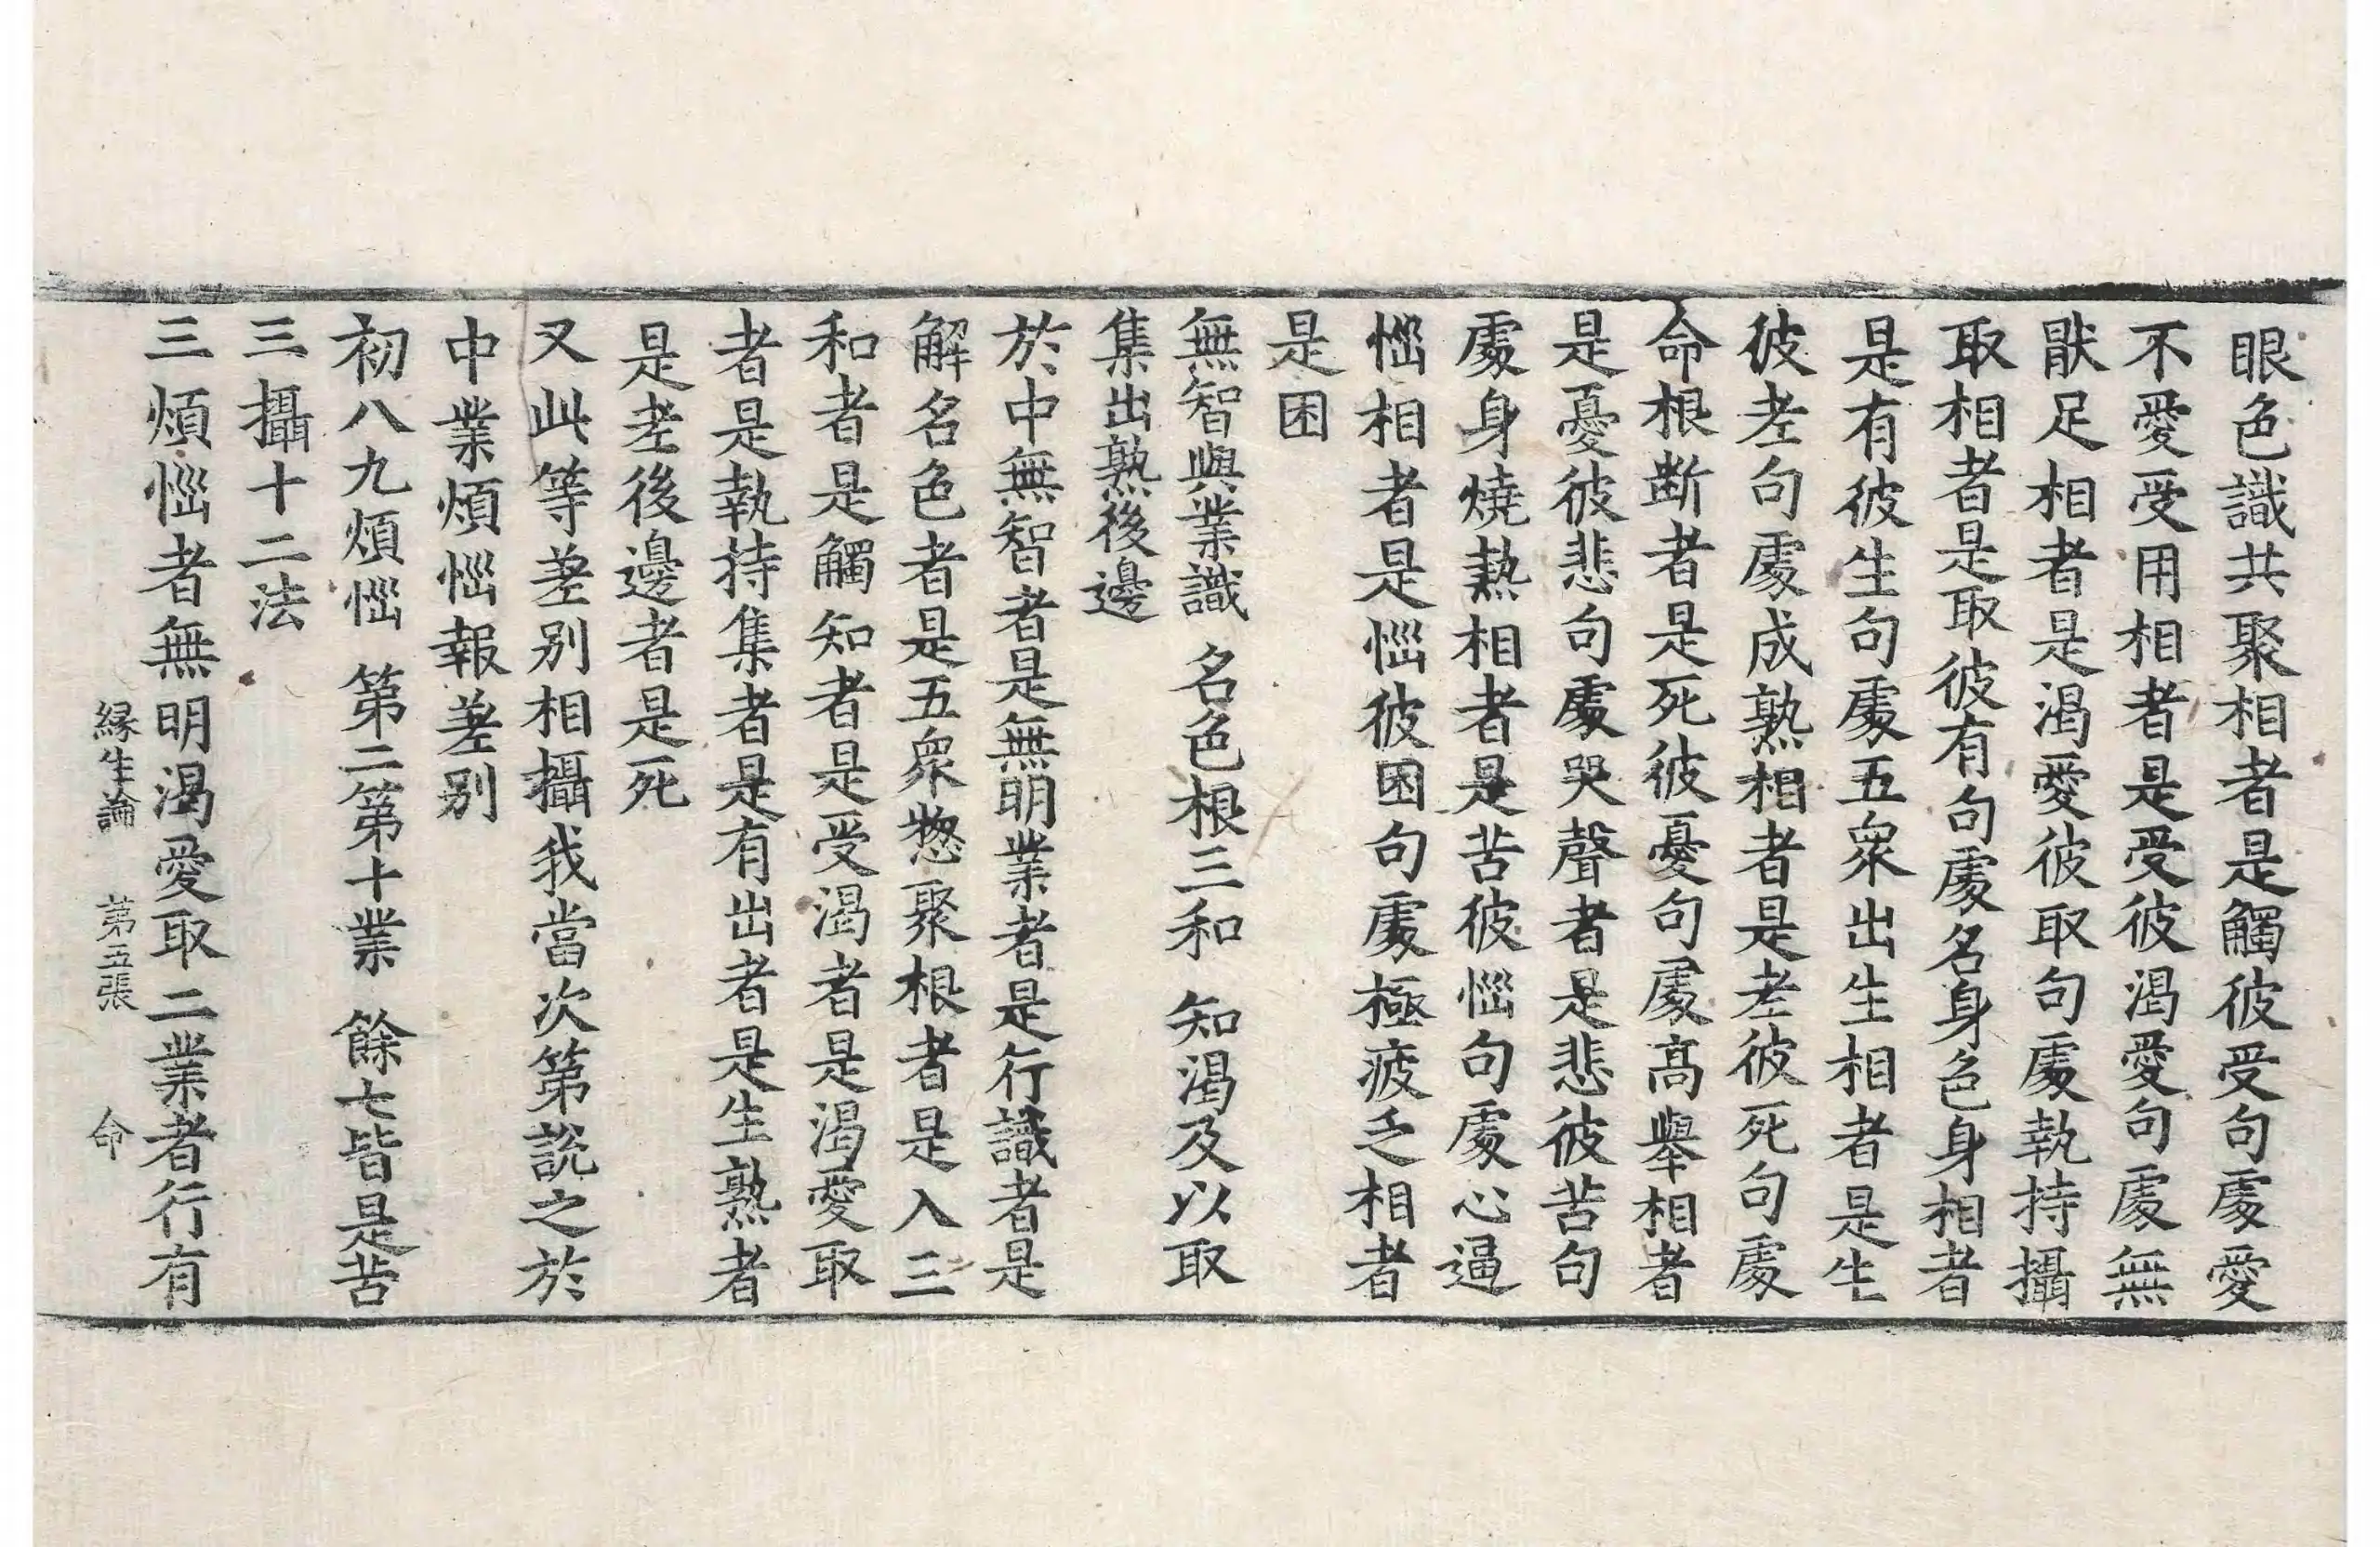 眼色識共聚相者是觸彼受句處愛
不愛受用相者是受彼渴愛句處無
猒足相者是渴愛彼取句處執持攝
取相者是取彼有句處名身色身相者
是有彼生句處五衆出生相者是生
彼老句處成熟相者是老彼死句處
命根断者是死彼憂句處高舉相者
是憂彼悲句處哭聲者是悲彼苦句
處身燒熱相者是苦彼惱句處心逼
惱相者是惱彼困句處極疲乏相者
是困
無智與業識 名色根三和 知渴及以取
集出熟後邊
於中無智者是無明業者是行識者是
解名色者是五衆惣聚根者是入三
和者是觸知者是受渴者是渴愛取
者是執持集者是有出者是生熟者
是老後邊者是死
又此等差别相攝我當次第説之於
中業煩惱報差别
初八九煩惱 第二第十業 餘七皆是苦
三攝十二法
三煩惱者無明渴愛取二業者行有
緣生論 第五張 命